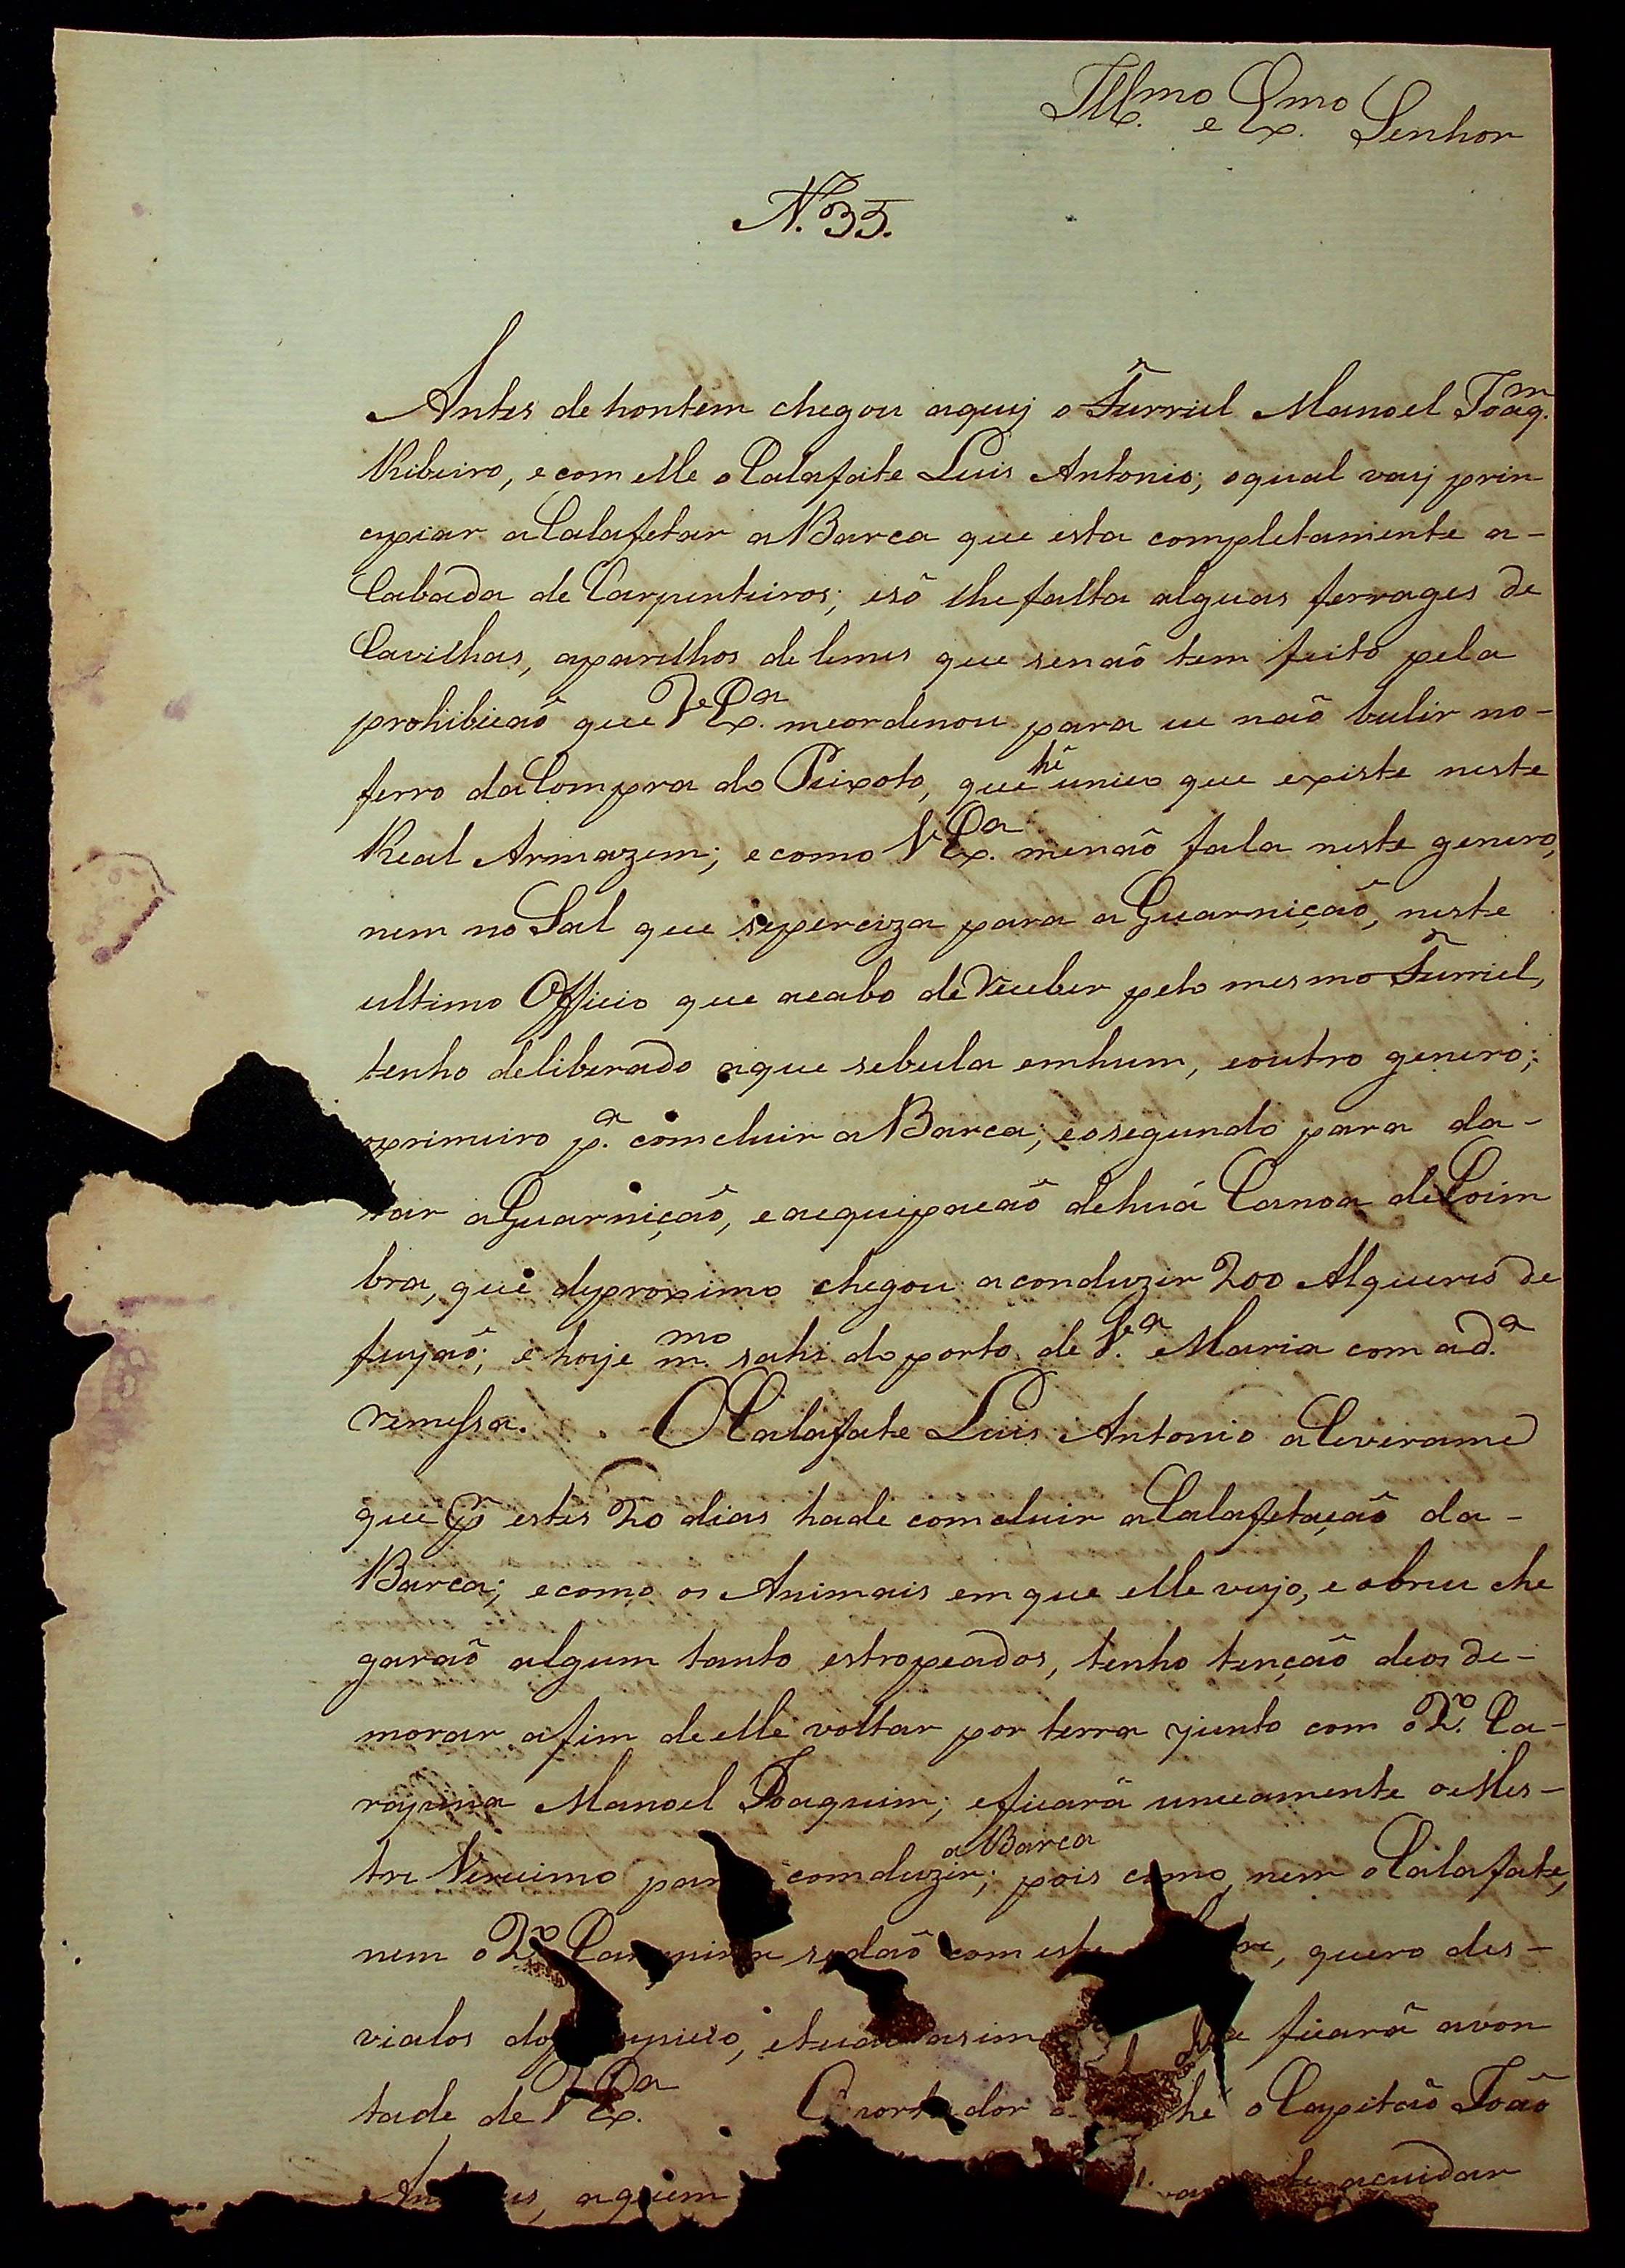 Ill.mo e Ex.mo Senhor
N. 35.
Antes de hontem chegou aquy o Furriel Manoel Joaq.m
Ribeiro, e com elle o Calafate Luis Antonio; o qual vay prin
cipiar a Calafetar a Barca que esta completamente a-
Cabada de Carpenteiros; e só lhe falta alguas ferrages de
Cavilhas, aparelhos de lemes que se naõ tem feito pela
prohibicaõ que V Ex.a me ordenou para eu naõ bulir no-
ferro da Compra do Peixoto, que hê unico que existe neste
Real Armazem; e como V Ex.a me naõ fala neste genero,
nem no Sal que se perciza para a Guarniçaõ, neste
ultimo Officio que acabo de receber pelo mesmo Furriel,
tenho deliberado a que se bula em hum, e outro genero;
o primeiro p.a comcluir a Barca, e o segundo para da-
tar a Guarniçaõ, e a equipacaõ de huá Canoa de Coim
bra, que de proximo chegou a conduzir 200 Alqueres de
feyjaõ; e hoje m.mo sahe do porto de V.a Maria com a d.a
remessa. O Calafate Luis Antonio aSeverame
que p estes 20 dias hade comcluir a Calafetacaõ da-
Barca; e como os Animais em que elle veyo, e obreu che
garaõ algum tanto estropeados, tenho tençaõ de os de-
morar a fim de elle voltar por terra junto com o 2.o Ca-
rapina Manoel Joaquim; e ficará unicamente o Mes-
tre Verisimo para comduzir a Barca; pois como nem o Calafate,
nem o 2.o Carapina se daõ com este tre, quero des-
vialos do, e tudo asim ficará a von
tade de V Ex.a O portador hé o Capitaõ Joaõ
a quem de acuidar